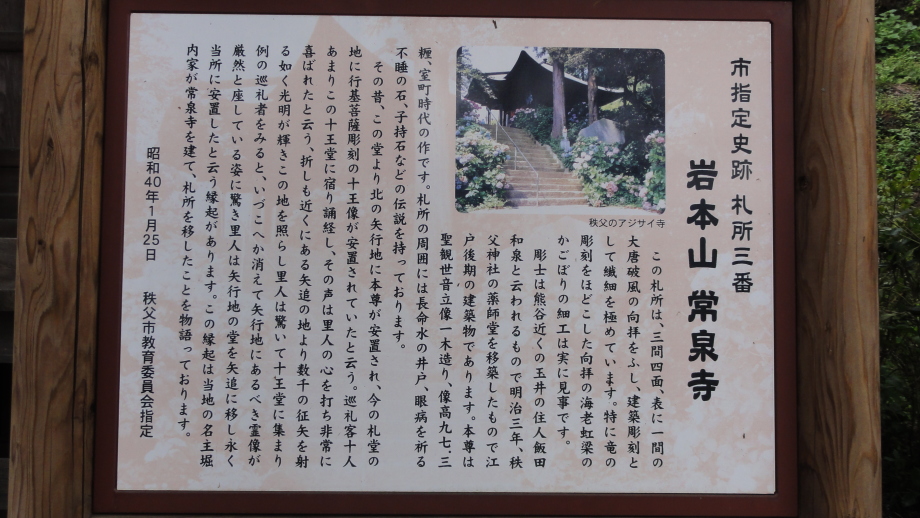 市指定史跡 札所三番
岩本山 常泉寺
秩父のアジサイ寺
この札所は、三間四面、表に一間の
大唐破風の向拝をふし、建築彫刻と
して繊細を極めています。特に竜の
彫刻をほどこした向拝の海老虹梁の
かごぼりの細工は実に見事です。
彫士は熊谷近くの玉井の住人飯田
和泉と云われるもので明治三年、秩
父神社の薬師堂を移築したもので江
戸後期の建築物であります。本尊は
聖観世音立像一木造り、像高九七、三
糎、室町時代の作です。札所の周囲には長命水の井戸、眼病を祈る
不睡の石、子持石などの伝説を持っております。
その昔、この堂より北の矢行地に本尊が安置され、今の札堂の
地に行基菩薩彫刻の十王像が安置されていたと云う。巡礼客十人
あまりこの十王堂に宿り誦経し、その声は里人の心を打ち非常に
喜ばれたと云う、折しも近くにある矢追の地より数千の征矢を射
る如く光明が輝きこの地を照らし里人は驚いて十王堂に集まり
例の巡礼者をみると、いづこへか消えて矢行地にあるべき霊像が
厳然と座している姿に驚き里人は矢行地の堂を矢追に移し永く
当所に安置したと云う縁起があります。この縁起は当地の名主堀
内家が常泉寺を建て、札所を移したことを物語っております。
昭和40年1月25日 秩父市教育委員会指定